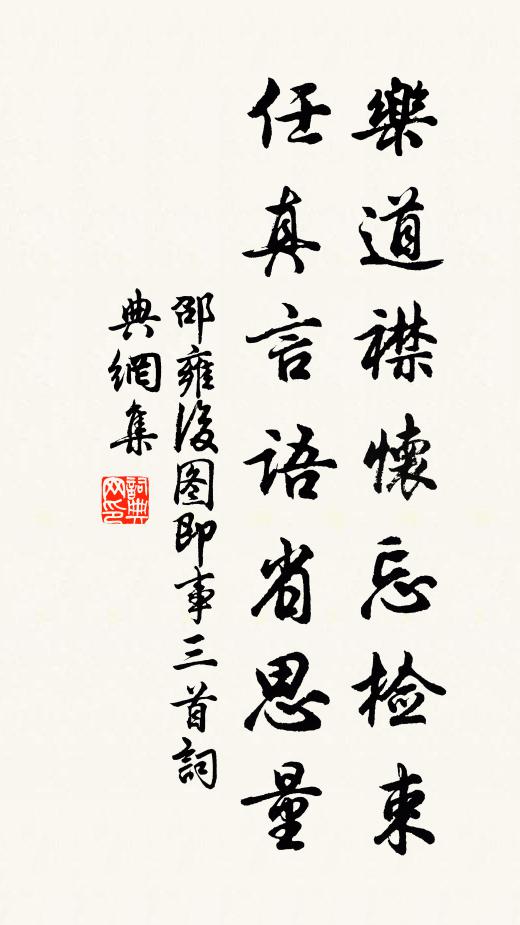 樂道襟懷忘檢束
任真言語省思量
邵雍後圖即事三首詞
典網集
詞典
网印